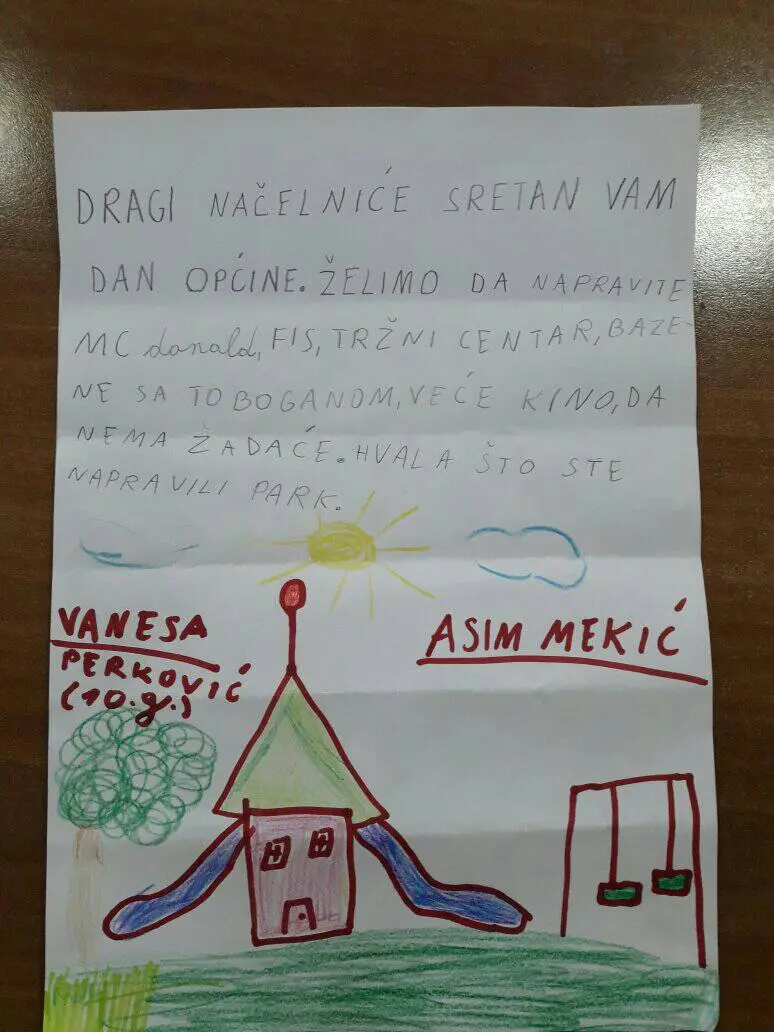 DRAGI NAČELNIĆE SRETAN VAM
DAN OPĆINE. ŽELIMO DA NAPRAVITE
MC donald, FIS, TRŽNI CENTAR, BAZE-
NE SA TOBOGANOM, VEĆE KINO, DA
NEMA ŽADAĆE. HVALA ŠTO STE
NAPRAVILI PARK.
VANESA
PERKOVIĆ
(10.g.)
ASIM MEKIĆ